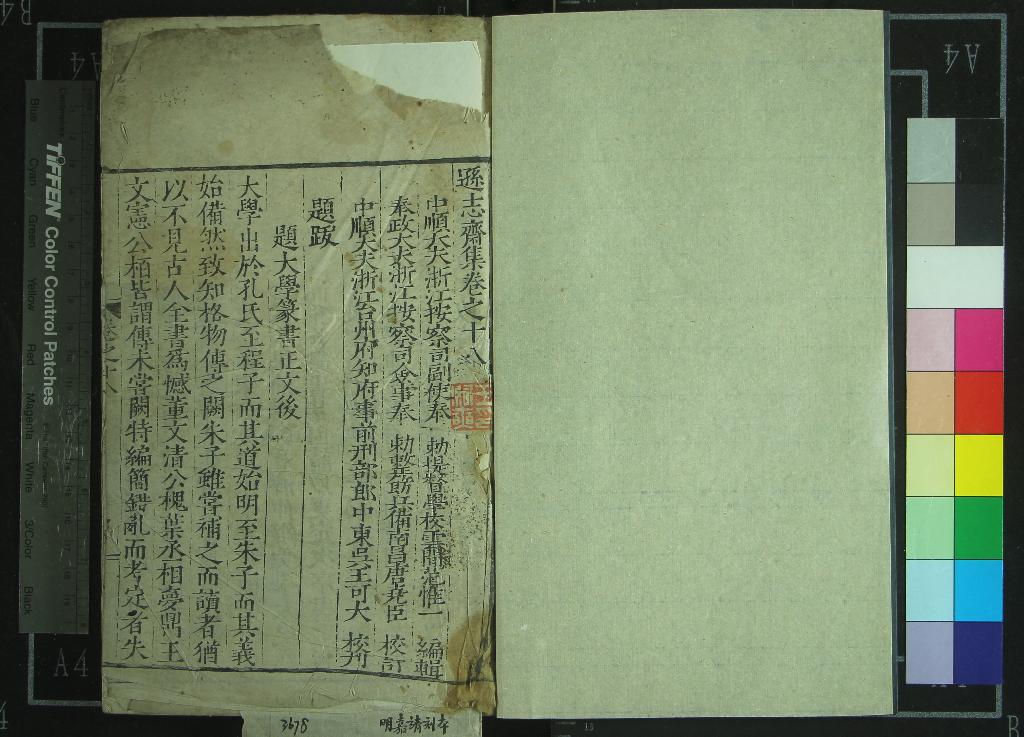 遜志齋集卷之十八
中順大夫浙江按察司副使奉 勅提督學校雲間范惟一 編輯
奉政大夫浙江按察司僉事奉 勅整飭兵備南昌唐堯臣 校訂
中順大夫浙江台州府知府事前刑部郎中東吳王可大 校刋
題跋
題大學篆書正文後
大學出於孔氏至程子而其道始明至朱子而其義
始備然致知格物傳之闕朱子雖嘗補之而讀者猶
以不見古人全書爲憾董文清公槐葉丞相夢鼎王
文憲公栢皆謂傳未嘗闕特編簡錯亂而考定者失
卷之十八
3678
明嘉靖刻本
TIFFEN Color Control Patches
Blue Cyan Green Yellow Red Magenta White 3/Color Black
A4
A4
A4
A4